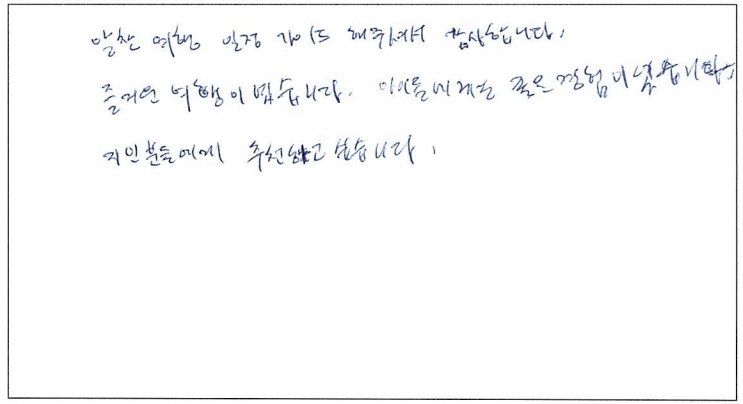 알찬 여행 일정 가이드 해주셔서 감사합니다.
즐거운 여행이었습니다. 아이들에게는 좋은 경험이었습니다.
지인분들에게 추천하고 싶습니다.